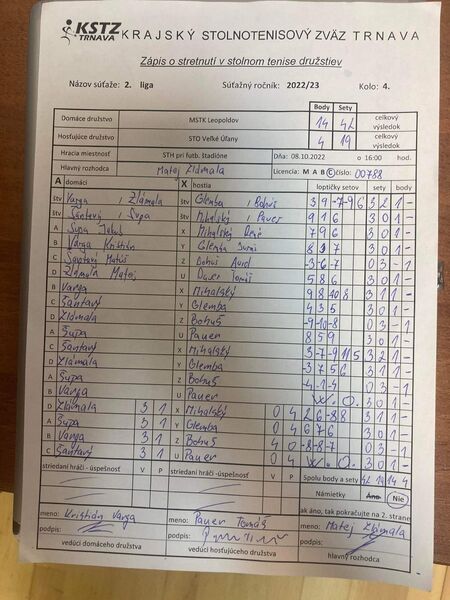 KSTZ TRNAVA KRAJSKÝ STOLNOTENISOVÝ ZVÄZ TRNAVA
Zápis o stretnutí v stolnom tenise družstiev
Názov súťaže: 2. liga Súťažný ročník: 2022/23 Kolo: 4.
Body Sety
Domáce družstvo MSTK Leopoldov 14 42 celkový výsledok
Hosťujúce družstvo STO Veľké Úľany 4 19 celkový výsledok
Hracia miestnosť STH pri futb. štadióne Dňa: 08.10.2022 o 16:00 hod.
Hlavný rozhodca Matej Zlámala Licencia: M A B C číslo: 00788
A domáci X hostia loptičky setov sety body
štv Varga, Zlámala štv Glemba, Bohuš 3 9 -7 -9 6 3 2 1 -
štv Šantavý, Šupa štv Mihalský, Pauer 9 1 6 3 0 1 -
A Šupa X Mihalský 7 9 6 3 0 1 -
B Varga Kristián Y Glemba 3 0 1 -
C Šantavý Matúš Z Bohuš -3 -6 -7 0 3 - 1
D Zlámala Matej U Pauer Tomáš 5 8 6 3 0 1 -
B Varga X Mihalský 9 8 10 8 3 1 1 -
C Šantavý Y Glemba 4 3 5 3 0 1 -
D Zlámala Z Bohuš -9 -10 -8 0 3 - 1
A Šupa U Pauer 8 5 9 3 0 1 -
C Šantavý X Mihalský 3 -7 -9 11 5 3 2 1 -
D Zlámala Y Glemba 3 1 1 -
A Šupa Z Bohuš 0 3 - 1
B Varga U Pauer W.O. 3 0 1 -
D Zlámala 3 1 X Mihalský 0 4 3 1 1 -
A Šupa 3 1 Y Glemba 0 4 3 0 1 -
B Varga 3 1 Z Bohuš 4 0 -8 -8 -7 0 3 - 1
C Šantavý 3 1 U Pauer 0 4 W.O. 3 0 1 -
striedaní hráči -úspešnosť V P striedaní hráči -úspešnosť V P Spolu body a sety 42 19 14 4
Námietky Áno Nie
meno: Kristián Varga meno: Pauer Tomáš ak áno, tak pokračujte na 2. strane
meno: Matej Zlámala
podpis: podpis: podpis:
vedúci domáceho družstva vedúci hosťujúceho družstva hlavný rozhodca